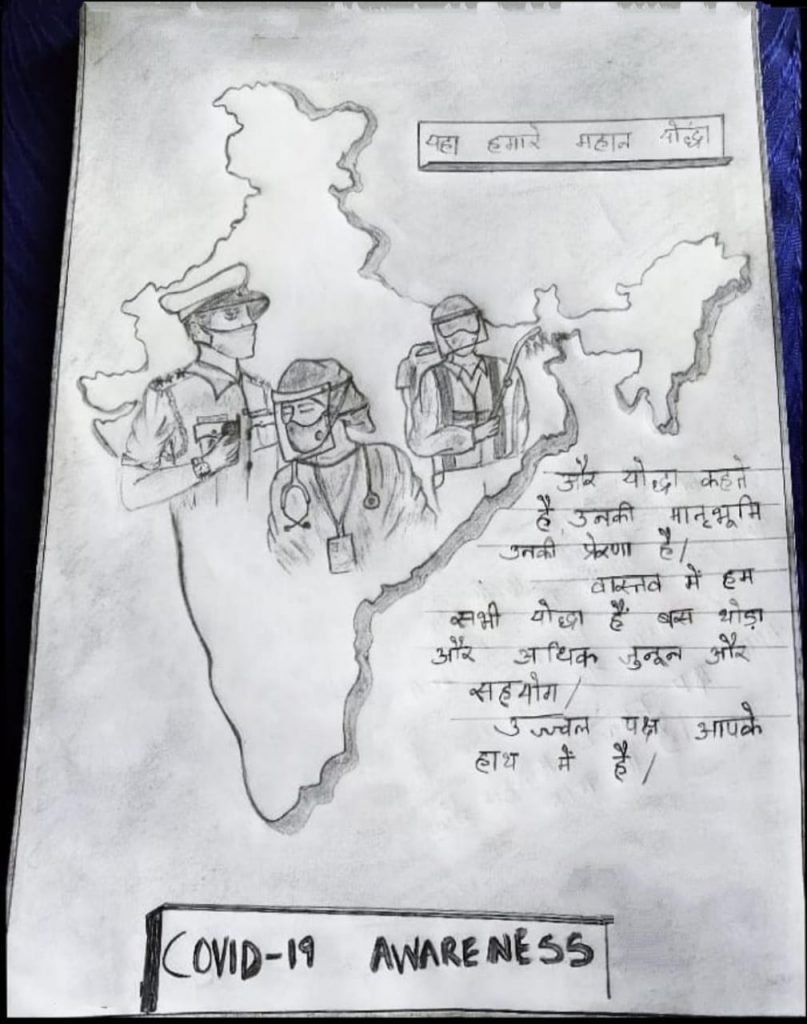 यहा हमारे महान योद्धा
और योद्धा कहते
है उनकी मातृभूमि
उनकी प्रेरणा है/
वास्तव में हम
सभी योद्धा हैं बस थोड़ा
और अधिक जुनून और
सहयोग/
उज्ज्वल पक्ष आपके
हाथ में है/
COVID-19 AWARENESS